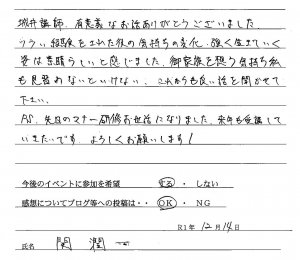 城井講師、有意義なお話ありがとうございました。
つらい経験をされた後の気持ちの変化、強く生きていく
姿は素晴らしいと感じました。御家族を想う気持ち私
も見習わないといけない。これからも良い話を聞かせて
下さい。
PS. 先日のマナー研修お世話になりました。来年も受講して
いきたいです。よろしくお願いします!
今後のイベントに参加を希望 する ・ しない
感想についてブログ等への投稿は・・ OK ・ NG
R1年 12月 14日
氏名 関 潤一